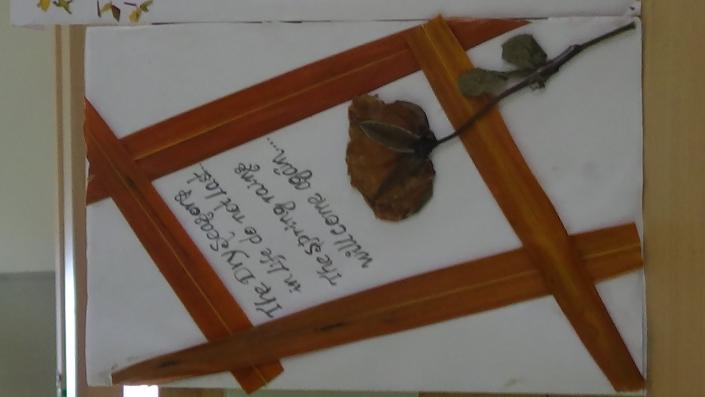 The Dry Seasons
in life do not last.
The spring rains
will come again....